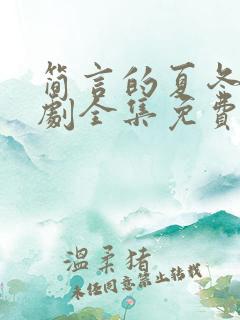 简言的夏冬
劇全集免費
溫柔猪
未经同意禁止转载